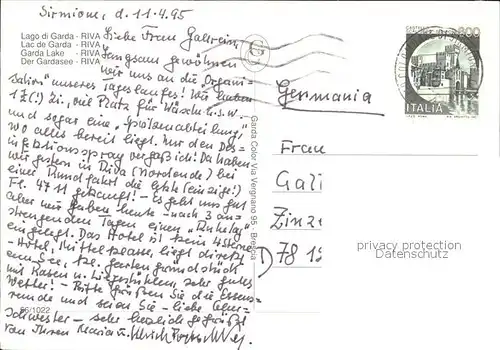 Sirmione, d. 11.4.95
Lago di Garda - RIVA
Lac de Garda - RIVA
Garda Lake - RIVA
Der Gardasee - RIVA
Liebe Frau
Langsam gewöhnen
wir uns an die Organi-
sation unseres Tageslaufes! Wir haben
1 Z(!) Zi, viel Platz für Wäsche u.s.w.
und sogar eine
wo alles bereit liegt. Nur den Des-
infektionsspray vergaß ich! Da haben
wir gestern in Riva (Nordende) bei
einer Rundfahrt die letzte (einzige!)
Fl. 4711 gekauft! - Es geht uns gut
aber wir haben heute - nach 3 an-
strengenden Tagen einen "Ruhetag"
eingelegt. Das Hotel ist kein 4 Sterne
- Hotel, Mittelklasse, liegt direkt
am See, gr. Gartengrundstück
mit Rasen u. Liegestühlen, sehr gutes
Wetter! - Bitte grüßen Sie die
und seien Sie - liebe
schwester - sehr herzlich gegrüßt
von Ihren Maria u. Ulrich
66/1022
Garda Color Via Vergnano 95 - Brescia
Germania
Frau
Gali
Zinz
D 78 1
ITALIA
privacy protection
Datenschutz